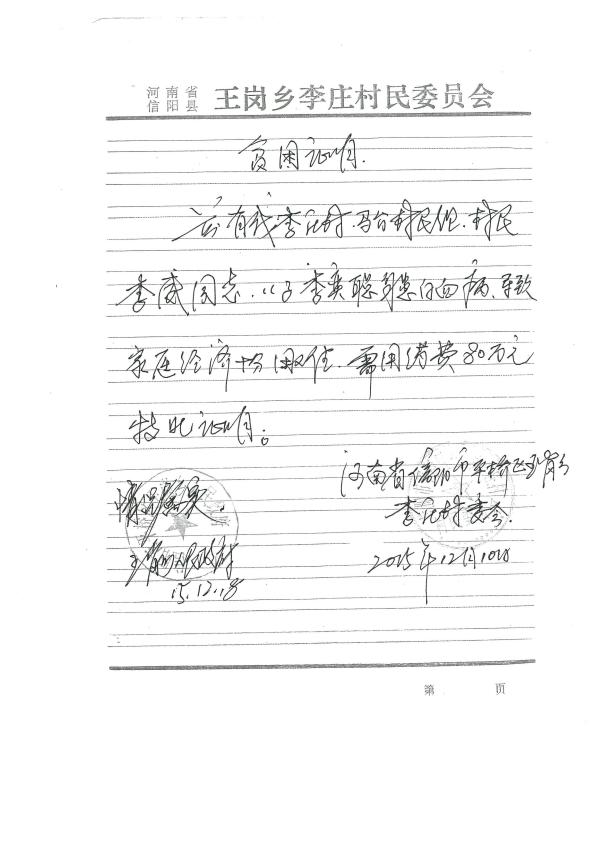 河南省
信阳县 王岗乡李庄村民委员会
贫困证明
兹有我李庄村马台村民组,村民
李威同志,儿子李奕聪患白血病,导致
家庭经济十分困难,需用债费80万元
特此证明。
河南省信阳市平桥区王岗乡
李庄村委会
2015年12月10日
情况属实
王岗乡人民政府
15.12.18
第 页